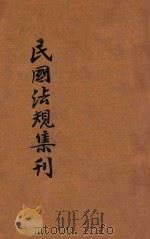 民國法規集刊
mtoou.info yunshuge.com